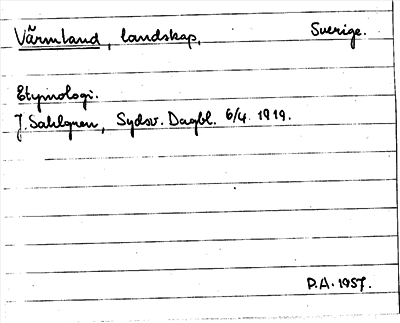 Värmland, landskap, Sverige.
Etymologi.
J. Sahlgren, Sydsv. Dagbl. 6/4. 1919.
P.A. 1957.